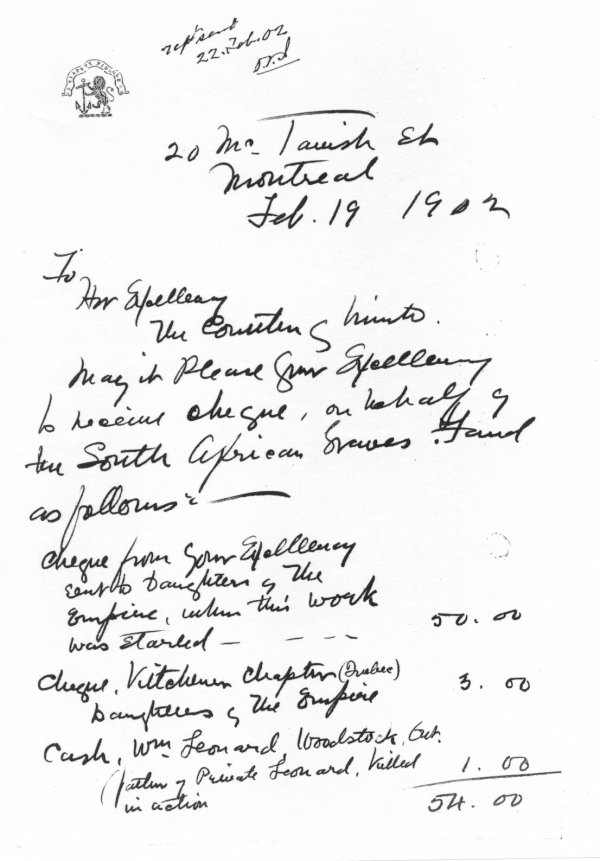 22. Feb. 02
20 Mc Tavish St
Montreal
Feb. 19 1902
To
Her Excellency
The Countess of Minto.
May it Please Your Excellency
to receive cheque, on behalf of
the South African Graves Fund
as follows:—
Cheque from Your Excellency
sent to Daughters of The
Empire, when this work
was started — - - - 50.00
Cheque, Kitchener Chapter (Quebec) 3.00
Daughters of The Empire
Cash, Wm Leonard, Woodstock, Ont.
(father of Private Leonard, Killed 1.00
in action 54.00